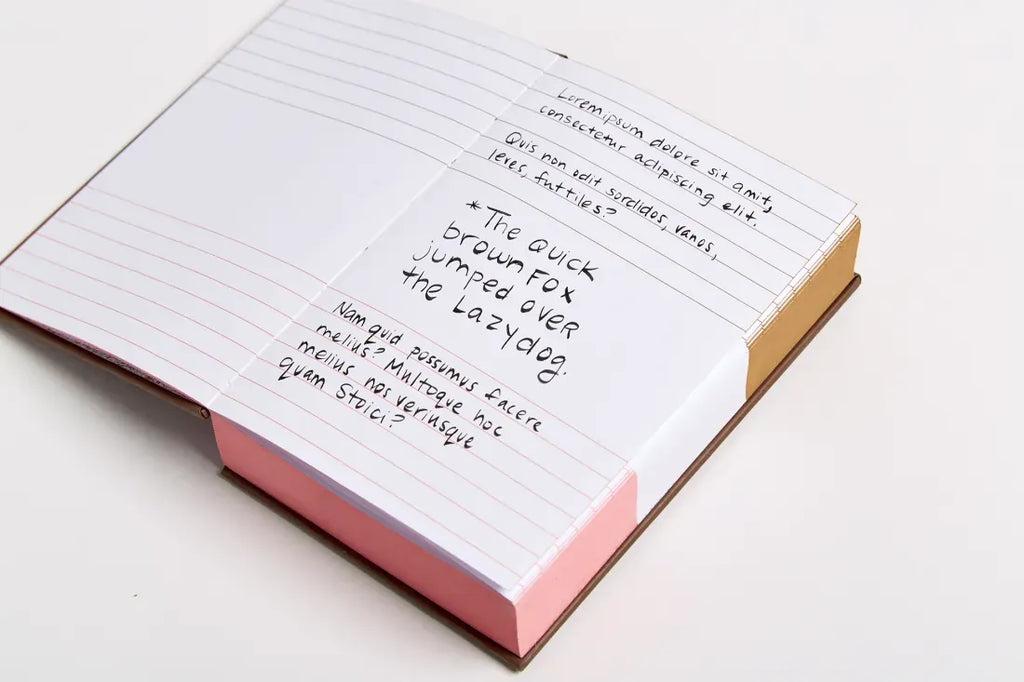 Lorem ipsum dolore sit amit,
consectetur adipiscing elit.
Quis non odit sordidos, vanos,
leves, futtiles?
*The Quick
brown Fox
jumped over
the Lazy dog.
Nam quid possumus facere
melius? Multoque hoc
melius nos veriusque
quam Stoici?